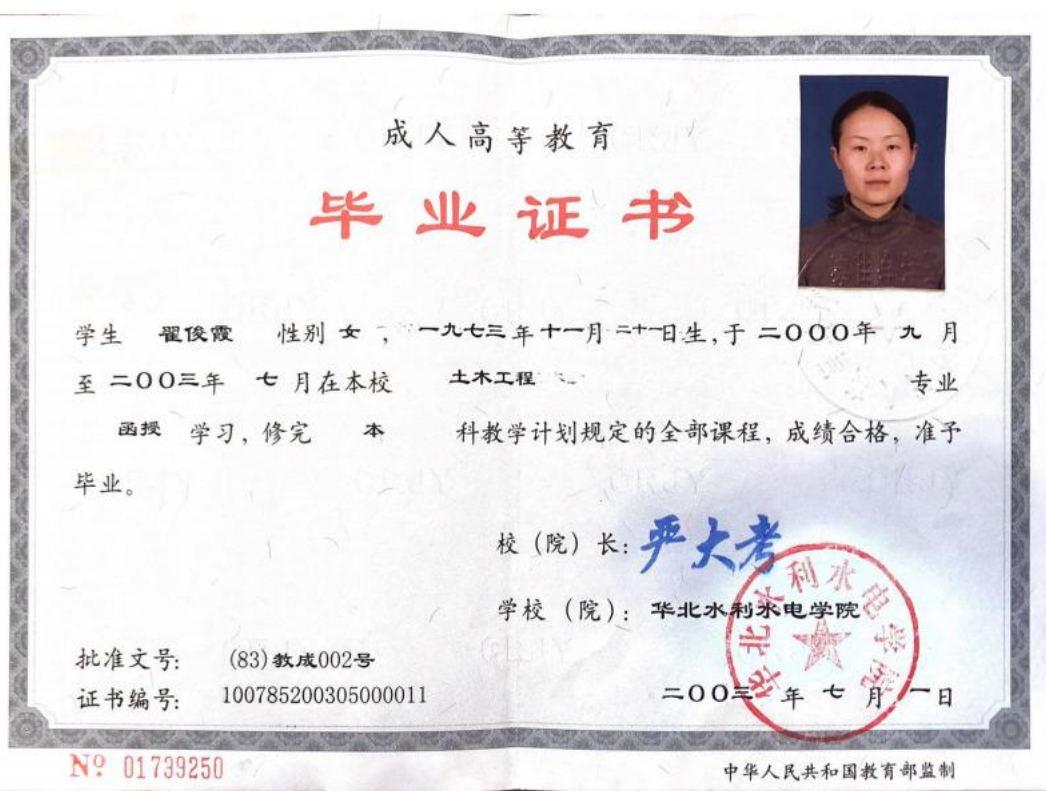 成人高等教育
毕业证书
学生 翟俊霞 性别 女 , 一九七三年十一月二十一日生,于 二〇〇〇年 九 月
至 二〇〇三年 七 月在本校 土木工程 专业
函授 学习, 修完 本 科教学计划规定的全部课程, 成绩合格, 准予
毕业。
校（院）长: 严大考
学校（院）: 华北水利水电学院
华北水利水电学院
批准文号: (83)教成002号
证书编号: 100785200305000011
二〇〇三 年 七 月 一日
Nº 01739250
中华人民共和国教育部监制